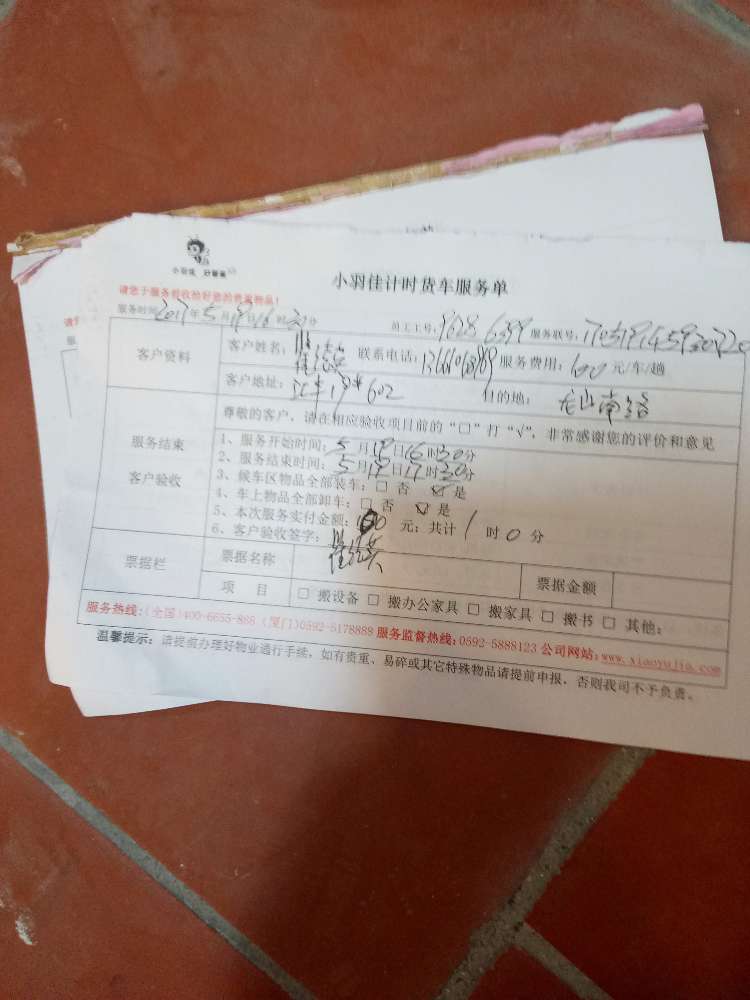 小羽佳 好管家
小羽佳计时货车服务单
请您于服务前收拾好您的贵重物品！
服务时间2017年5月19日16时30分 员工工号：9628 6399 服务联号：
客户资料 客户姓名： 联系电话： 服务费用：600元/车/趟
客户地址： 602 目的地：龙山南路
服务结束
客户验收
尊敬的客户，请在相应验收项目前的“□”打“√”，非常感谢您的评价和意见
1、服务开始时间：5月19日16时30分
2、服务结束时间：5月19日17时30分
3、候车区物品全部装车：□ 否 ☑ 是
4、车上物品全部卸车：□ 否 ☑ 是
5、本次服务实付金额： 元；共计1时0分
6、客户验收签字：
票据栏 票据名称 票据金额
项 目 □ 搬设备 □ 搬办公家具 □ 搬家具 □ 搬书 □ 其他：
服务热线：(全国)400-6655-888 (厦门)0592-5178889 服务监督热线：0592-5888123 公司网站：www.xiaoyujia.com
温馨提示：请提前办理好物业通行手续，如有贵重、易碎或其它特殊物品请提前申报，否则我司不予负责。